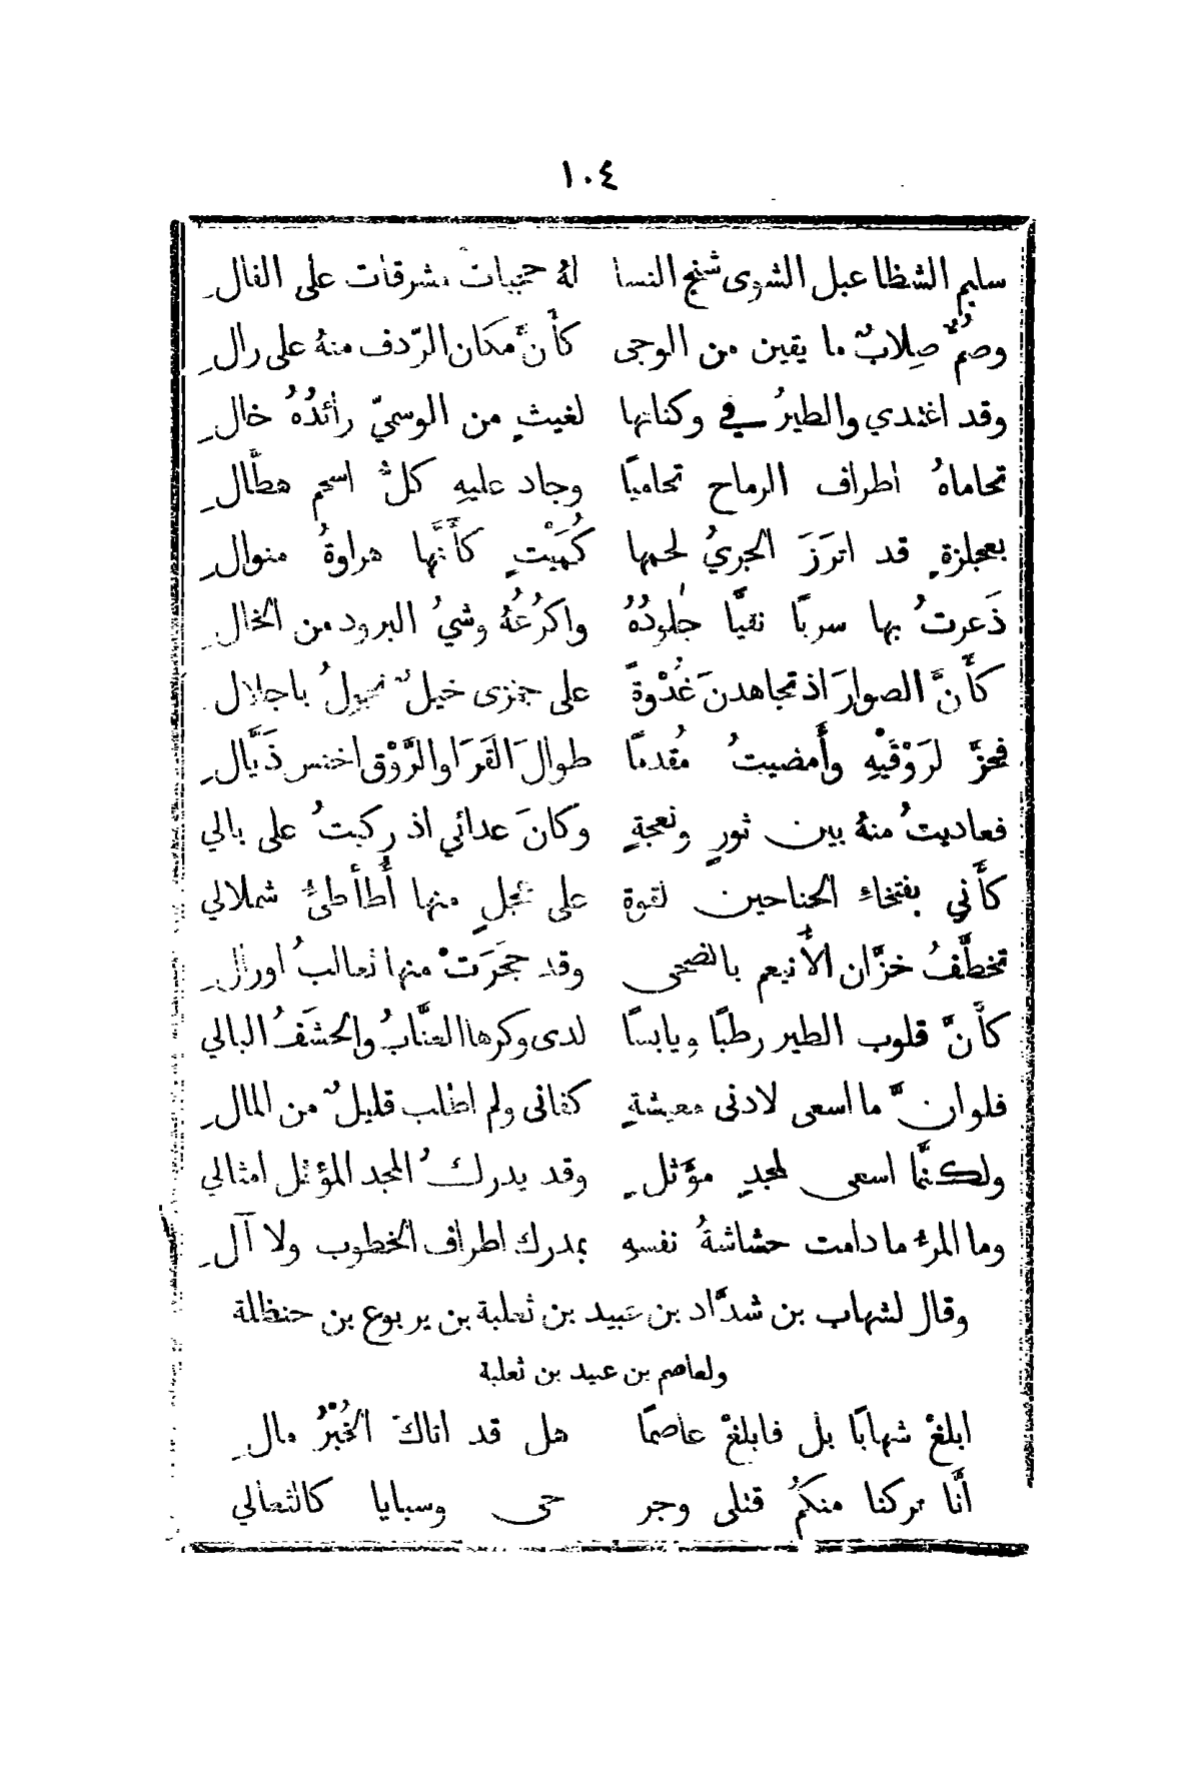 ١٠٤
سليم الشظا عبل الشوى شنج النسا لهُ حجبات مشرفات على الفالِ
وصُمٌّ صِلابٌ ما يقين من الوجى كأَنَّ مكان الرّدف منهُ على رالِ
وقد اغتدي والطيرُ في وكناتها لغيثٍ من الوسميّ رائدُهُ خالِ
تحاماهُ اطراف الرماح تحاميًا وجاد عليهِ كلُّ اسحم هطَّالِ
بعجلزةٍ قد اترَزَ الجريُ لحمها كُمَيْتٍ كأَنَّها هراوةُ منوالِ
ذَعرتُ بها سربًا نقيًّا جلودُهُ واكرُعُهُ وشيُ البرود من الخالِ
كأَنَّ الصوارَ اذ تجاهدنَ غُدْوةً على جمزى خيلٌ تجولُ باجلال
فخرَّ لرَوْقَيْهِ وأَمضيتُ مُقدمًا طوالَ القَرَا والرَّوْق اخنس ذَيَّالِ
فعاديتُ منهُ بين ثورٍ ونعجةٍ وكانَ عدائي اذ ركبتُ على بالي
كأَني بفتخاءِ الجناحين لقوة على عجلٍ منها أُطأطئُ شملالي
تخطَّفُ خزَّان الأنيعم بالضحى وقد حجَرَتْ منها ثعالبُ اورالِ
كأَنَّ قلوب الطير رطبًا ويابسًا لدى وكرها العنَّابُ والحشَفُ البالي
فلو انَّ ما اسعى لادنى معيشةٍ كفانى ولم اطلب قليلٌ من المالِ
ولكنَّما اسعى لمجدٍ مؤَثلٍ وقد يدركُ المجد المؤثل امثالي
وما المرءُ ما دامت حشاشةُ نفسهِ بمدرك اطراف الخطوب ولا آلِ
وقال لشهاب بن شدَّاد بن عبيد بن ثعلبة بن يربوع بن حنظلة
ولعاصم بن عبيد بن ثعلبة
ابلغْ شهابًا بل فابلغْ عاصمًا هل قد اتاكَ الخُبْرُ مالِ
أَنَّا تركنا منكمُ قتلى وجر حى وسبايا كالثعالي